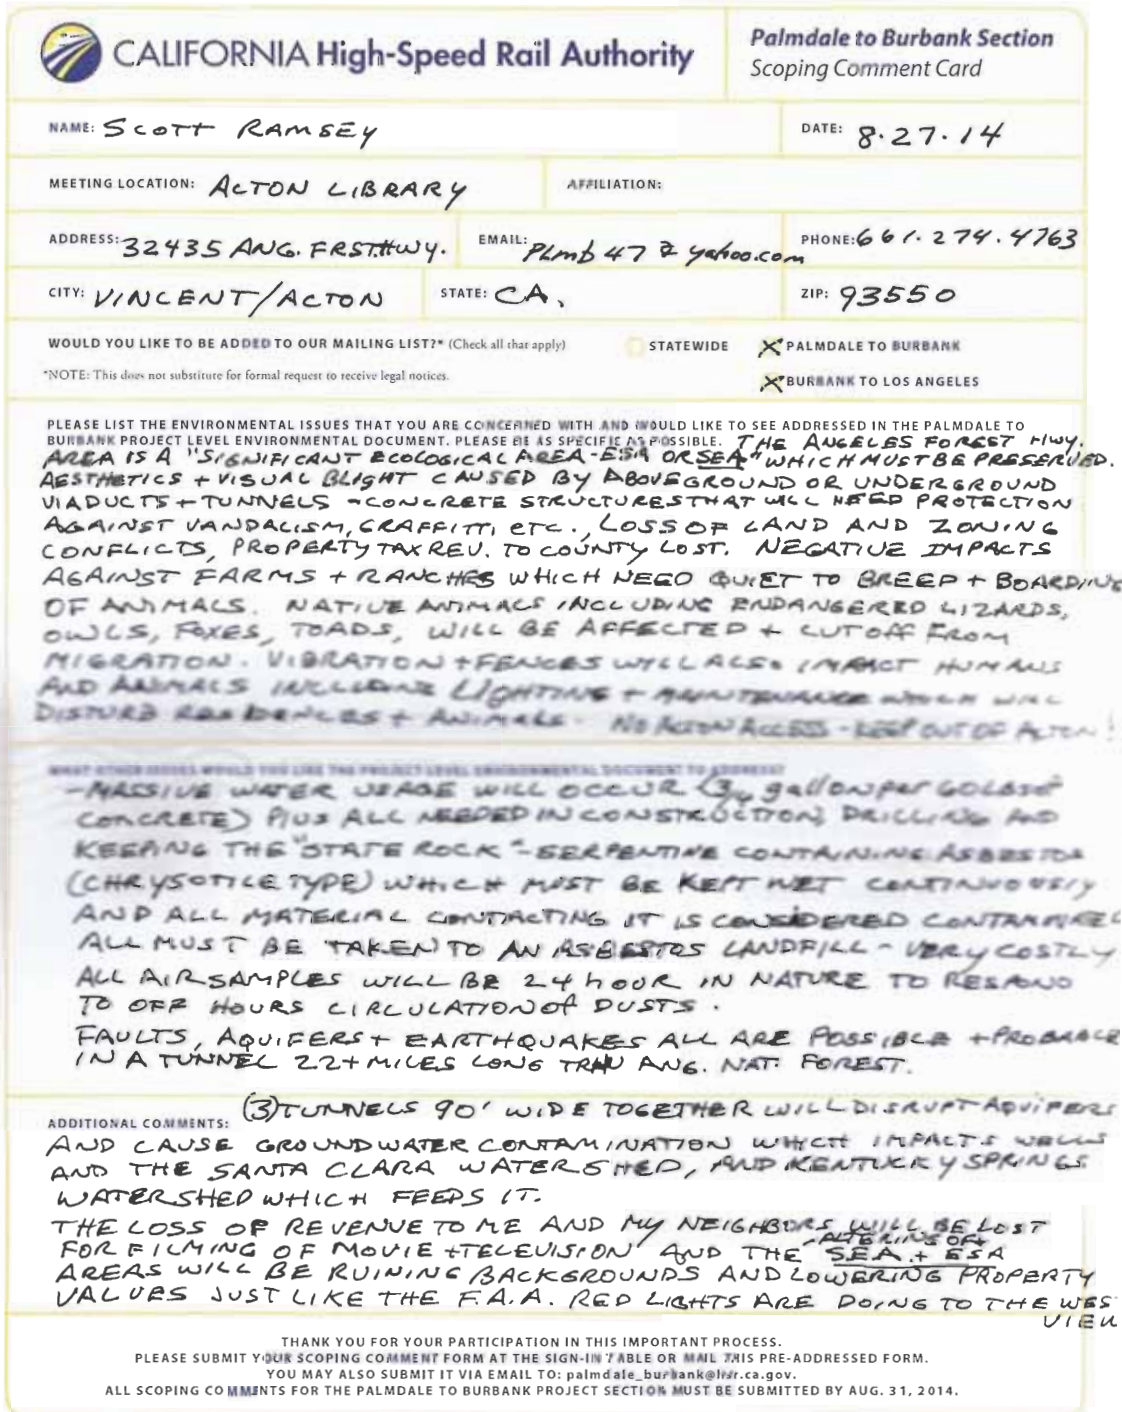 CALIFORNIA High-Speed Rail Authority
Palmdale to Burbank Section
Scoping Comment Card
NAME: SCOTT RAMSEY
DATE: 8.27.14
MEETING LOCATION: ACTON LIBRARY
AFFILIATION:
ADDRESS: 32435 ANG. FRST. HWY.
EMAIL: PLmb47@yahoo.com
PHONE: 661.274.4763
CITY: VINCENT/ACTON
STATE: CA.
ZIP: 93550
WOULD YOU LIKE TO BE ADDED TO OUR MAILING LIST?* (Check all that apply)
STATEWIDE
X PALMDALE TO BURBANK
*NOTE: This does not substitute for formal request to receive legal notices.
X BURBANK TO LOS ANGELES
PLEASE LIST THE ENVIRONMENTAL ISSUES THAT YOU ARE CONCERNED WITH AND WOULD LIKE TO SEE ADDRESSED IN THE PALMDALE TO
BURBANK PROJECT LEVEL ENVIRONMENTAL DOCUMENT. PLEASE BE AS SPECIFIC AS POSSIBLE. THE ANGELES FOREST HWY.
AREA IS A "SIGNIFICANT ECOLOGICAL AREA-ESA OR SEA" WHICH MUST BE PRESERVED.
AESTHETICS + VISUAL BLIGHT CAUSED BY ABOVEGROUND OR UNDERGROUND
VIADUCTS + TUNNELS - CONCRETE STRUCTURES THAT WILL NEED PROTECTION
AGAINST VANDALISM, GRAFFITTI ETC., LOSS OF LAND AND ZONING
CONFLICTS, PROPERTY TAX REV. TO COUNTY LOST. NEGATIVE IMPACTS
AGAINST FARMS + RANCHES WHICH NEED QUIET TO BREED + BOARDING
OF ANIMALS. NATIVE ANIMALS INCLUDING ENDANGERED LIZARDS,
OWLS, FOXES, TOADS, WILL BE AFFECTED + CUTOFF FROM
MIGRATION. VIBRATION + FENCES WILL ALSO IMPACT HUMANS
AND ANIMALS INCLUDING LIGHTING + MAINTENANCE WHICH WILL
DISTURB RESIDENCES + ANIMALS. NO ACTON ACCESS - KEEP OUT OF ACTON!
WHAT OTHER ISSUES WOULD YOU LIKE THE PROJECT LEVEL ENVIRONMENTAL DOCUMENT TO ADDRESS?
-MASSIVE WATER USAGE WILL OCCUR gallon per
CONCRETE) PLUS ALL NEEDED IN CONSTRUCTION, DRILLING AND
KEEPING THE "STATE ROCK" - SERPENTINE CONTAINING ASBESTOS
(CHRYSOTILE TYPE) WHICH MUST BE KEPT WET CONTINUOUSLY
AND ALL MATERIAL CONTACTING IT IS CONSIDERED
ALL MUST BE TAKEN TO AN ASBESTOS LANDFILL - VERY COSTLY
ALL AIR SAMPLES WILL BE 24 hOUR IN NATURE TO RESPOND
TO OFF HOURS CIRCULATION OF DUSTS.
FAULTS, AQUIFERS + EARTHQUAKES ALL ARE POSSIBLE + PROBABLE
IN A TUNNEL 22+ MILES LONG THRU ANG. NAT. FOREST.
ADDITIONAL COMMENTS: (3) TUNNELS 90' WIDE TOGETHER WILL DISRUPT AQUIFERS
AND CAUSE GROUNDWATER CONTAMINATION WHICH IMPACTS WELLS
AND THE SANTA CLARA WATERSHED, AND KENTUCKY SPRINGS
WATERSHED WHICH FEEDS IT.
THE LOSS OF REVENUE TO ME AND MY NEIGHBORS WILL BE LOST
FOR FILMING OF MOVIE + TELEVISION AND THE -ALTERING OF S.E.A. + ESA
AREAS WILL BE RUINING BACKGROUNDS AND LOWERING PROPERTY
VALUES JUST LIKE THE F.A.A. RED LIGHTS ARE DOING TO THE WES
VIEW
THANK YOU FOR YOUR PARTICIPATION IN THIS IMPORTANT PROCESS.
PLEASE SUBMIT YOUR SCOPING COMMENT FORM AT THE SIGN-IN TABLE OR MAIL THIS PRE-ADDRESSED FORM.
YOU MAY ALSO SUBMIT IT VIA EMAIL TO: palmdale_burbank@hsr.ca.gov.
ALL SCOPING COMMENTS FOR THE PALMDALE TO BURBANK PROJECT SECTION MUST BE SUBMITTED BY AUG. 31, 2014.